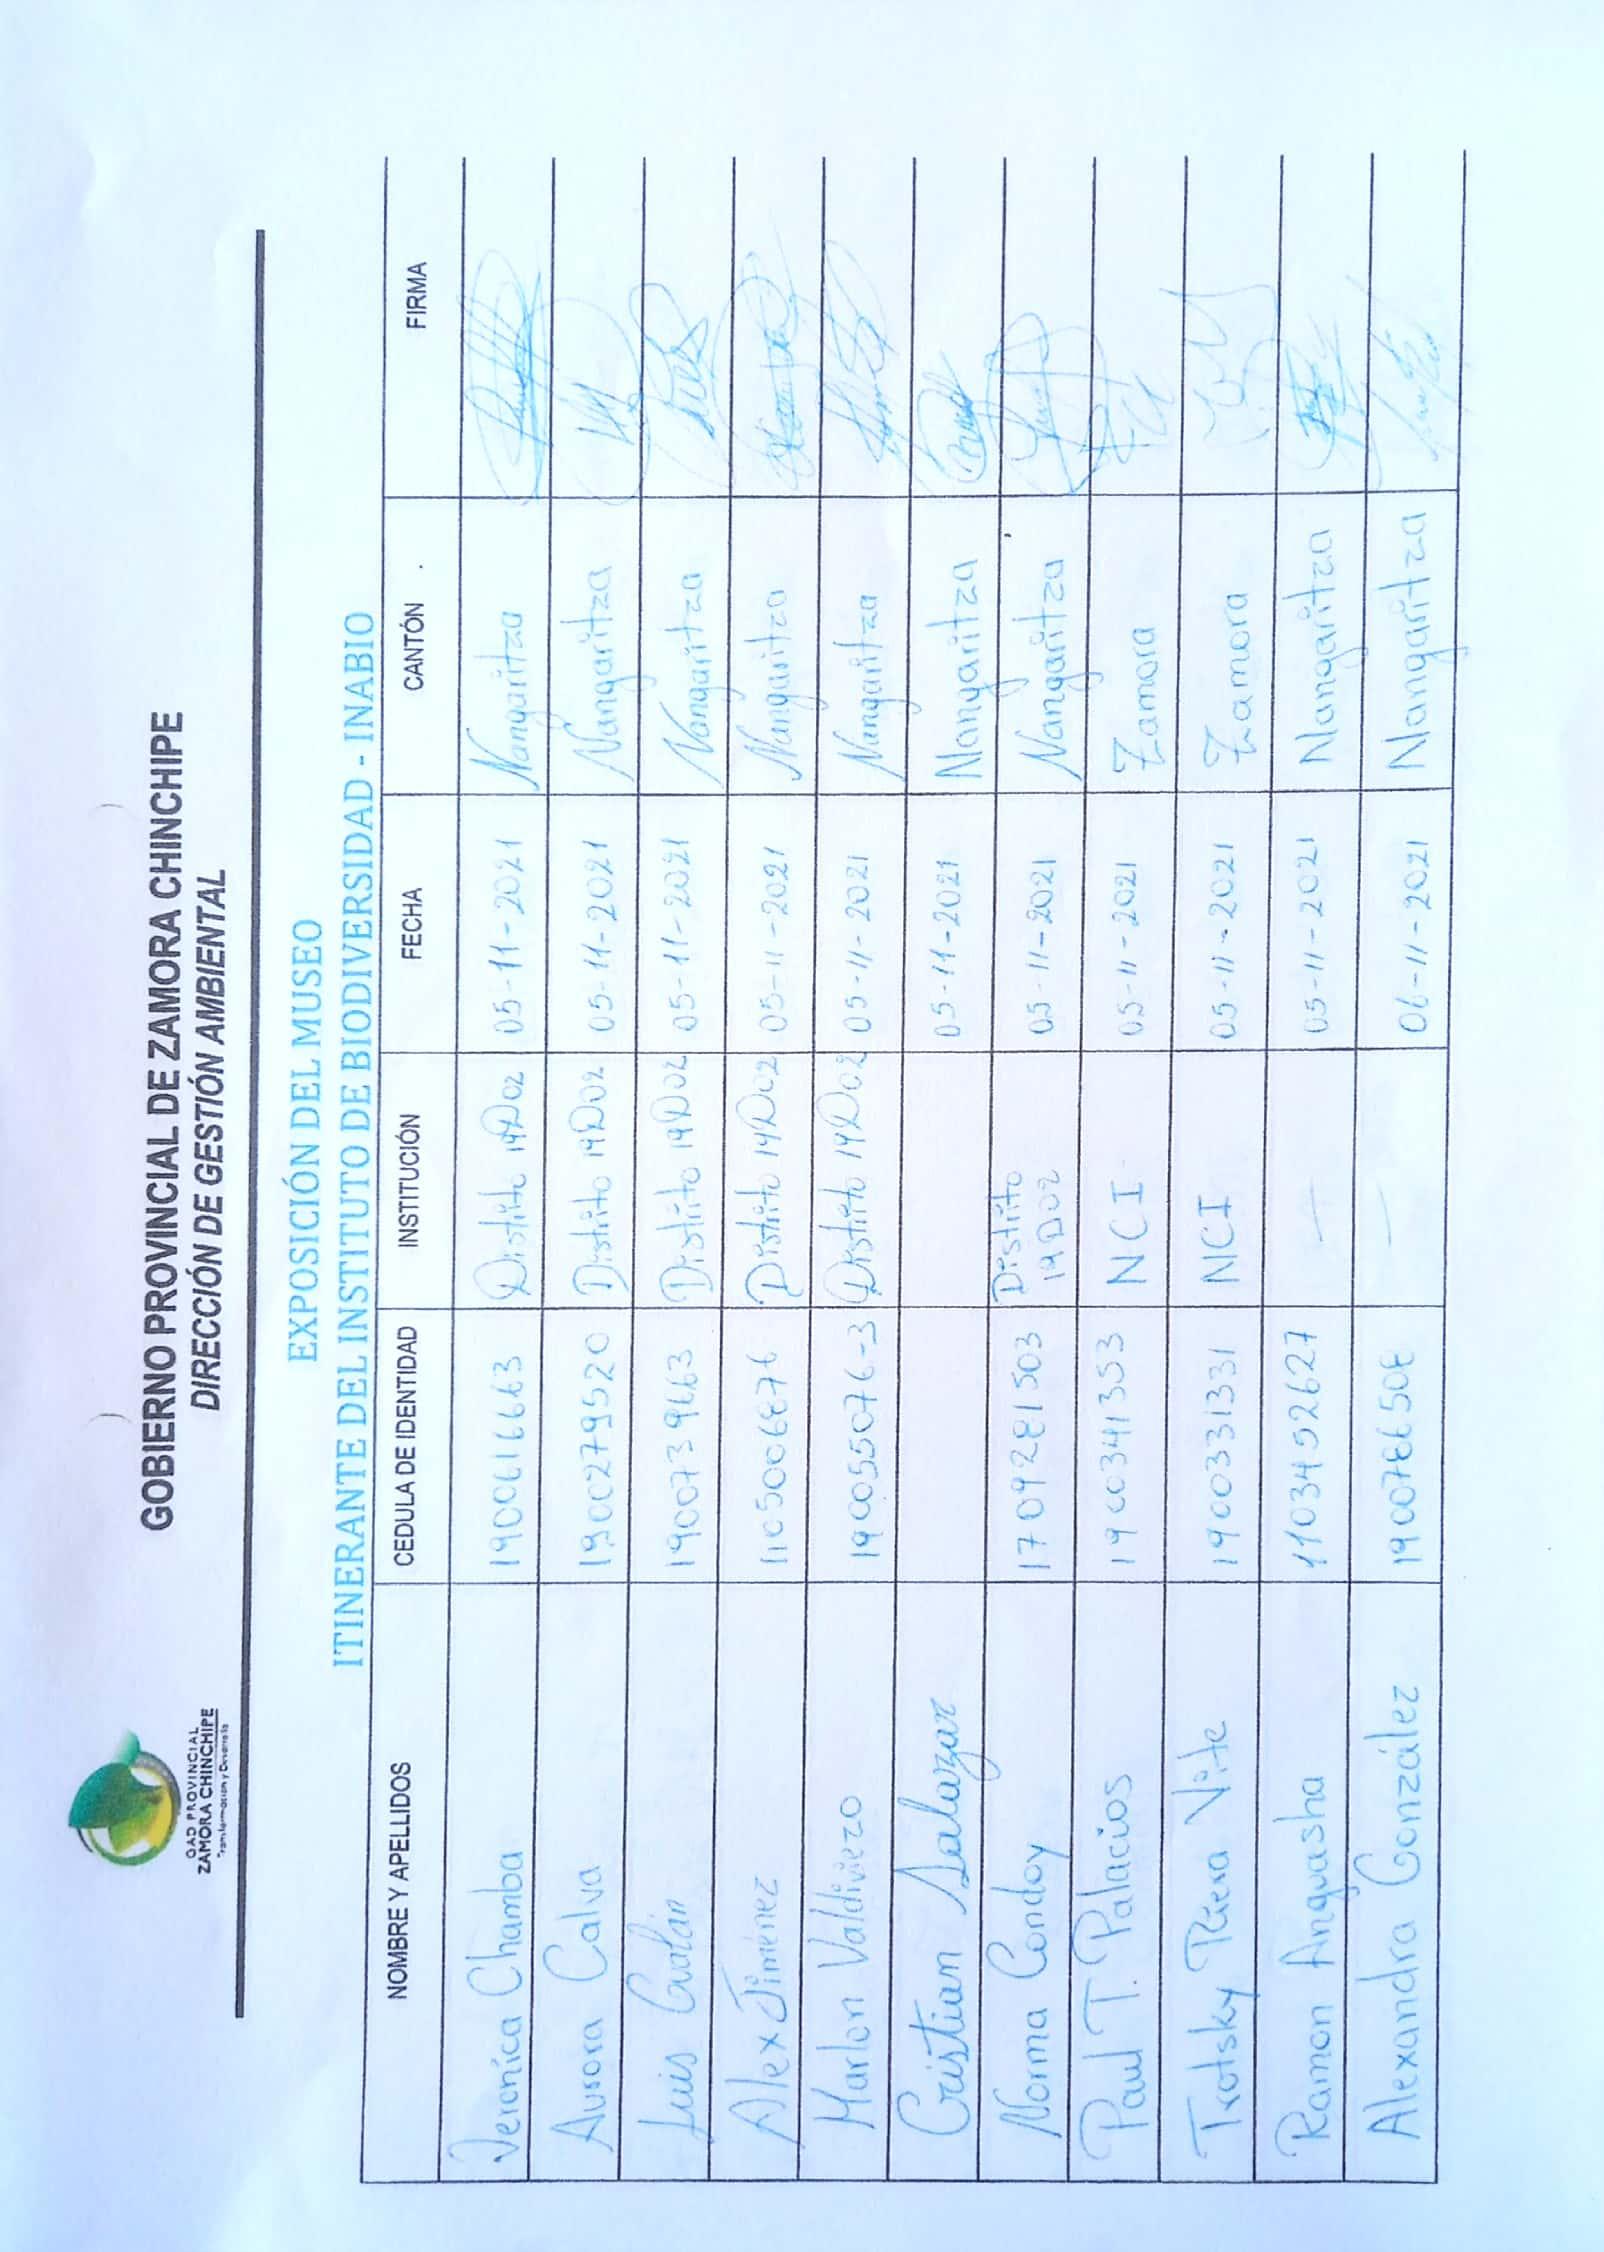 GAD PROVINCIAL
ZAMORA CHINCHIPE
Transformación y Desarrollo
GOBIERNO PROVINCIAL DE ZAMORA CHINCHIPE
DIRECCIÓN DE GESTIÓN AMBIENTAL
EXPOSICIÓN DEL MUSEO
ITINERANTE DEL INSTITUTO DE BIODIVERSIDAD - INABIO
NOMBRE Y APELLIDOS CEDULA DE IDENTIDAD INSTITUCIÓN FECHA CANTÓN FIRMA
Veronica Chamba 1900616663 Distrito 19D02 05-11-2021 Nangaritza
Aurora Calva 1900279520 Distrito 19D02 05-11-2021 Nangaritza
Luis Gualán 1900739663 Distrito 19D02 05-11-2021 Nangaritza
Alex Jiménez 1105006876 Distrito 19D02 05-11-2021 Nangaritza
Marlon Valdiviezo 190055076-3 Distrito 19D02 05-11-2021 Nangaritza
Cristian Salazar 05-11-2021 Nangaritza
Norma Condoy 1709281503 Distrito 19D02 05-11-2021 Nangaritza
Paul T. Palacios 1900341353 NCI 05-11-2021 Zamora
Trotsky Riera Vite 1900331331 NCI 05-11-2021 Zamora
Ramon Anguasha 1103452627 — 05-11-2021 Nangaritza
Alexandra González 1900786508 — 06-11-2021 Nangaritza